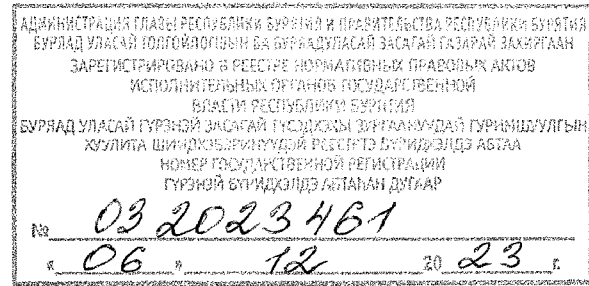 АДМИНИСТРАЦИЯ ГЛАВЫ РЕСПУБЛИКИ БУРЯТИЯ И ПРАВИТЕЛЬСТВА РЕСПУБЛИКИ БУРЯТИЯ
БУРЯАД УЛАСАЙ ТОЛГОЙЛОГШЫН БА БУРЯАД УЛАСАЙ ЗАСАГАЙ ГАЗАРАЙ ЗАХИРГААН
ЗАРЕГИСТРИРОВАНО В РЕЕСТРЕ НОРМАТИВНЫХ ПРАВОВЫХ АКТОВ
ИСПОЛНИТЕЛЬНЫХ ОРГАНОВ ГОСУДАРСТВЕННОЙ
ВЛАСТИ РЕСПУБЛИКИ БУРЯТИЯ
БУРЯАД УЛАСАЙ ГҮРЭНЭЙ ЗАСАГАЙ ГҮЙСЭДХЭХЫ ЗУРГААНУУДАЙ ГУРИМШУУЛГЫН
ХУУЛИТА ШИИДХЭБЭРИНҮҮДЭЙ РЕЕСТРТЭ БҮРИДХЭЛДЭ АБТАА
НОМЕР ГОСУДАРСТВЕННОЙ РЕГИСТРАЦИИ
ГҮРЭНЭЙ БҮРИДХЭЛДЭ АБТАҺАН ДУГААР
№ 032023461
« 06 » 12 20 23 г.